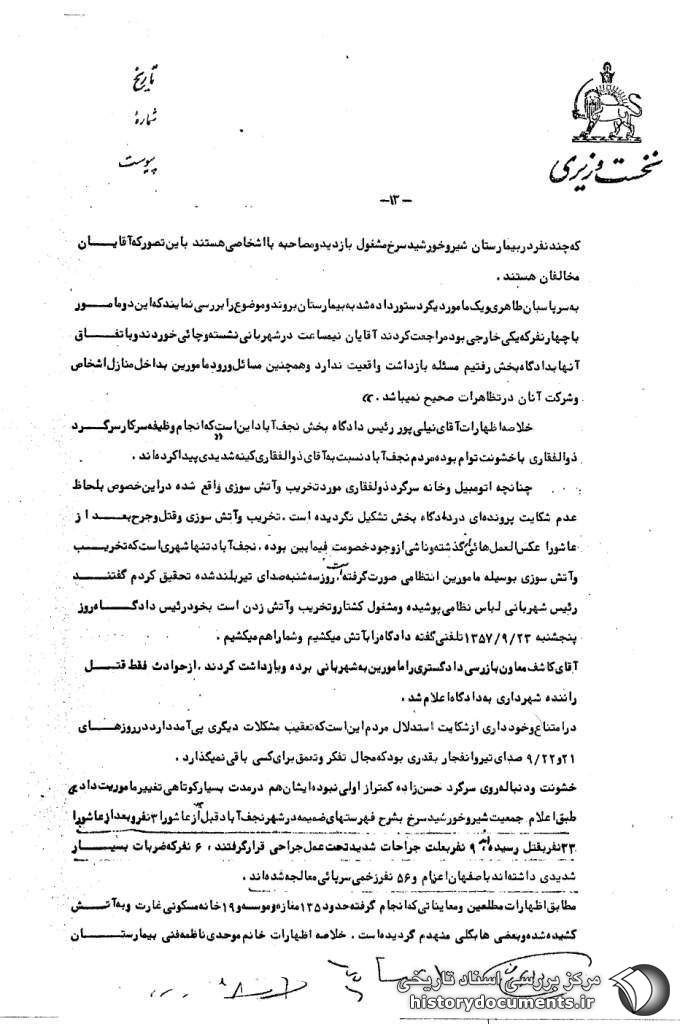 تاریخ
شمارهٔ
پیوست
نخست وزیری
-۱۳-
که چند نفر در بیمارستان شیر و خورشید سرخ مشغول بازدید و مصاحبه با اشخاصی هستند باین تصور که آقایان
مخالفان هستند .
به سر پاسبان طاهری ویک مامور دیگر دستور داده شد به بیمارستان بروند و موضوع را بررسی نمایند که این دو مامور
با چهار نفر که یکی خارجی بود مراجعت کردند آقایان نیمساعت در شهربانی نشسته و چائی خوردند و باتفاق
آنها به دادگاه بخش رفتیم مسئله بازداشت واقعیت ندارد وهمچنین مسائل ورود مامورین بداخل منازل اشخاص
وشرکت آنان در تظاهرات صحیح نمیباشد . »
خلاصه اظهارات آقای نیلی پور رئیس دادگاه بخش نجف آباد این است « که انجام وظیفه سرکار سرگرد
ذوالفقاری با خشونت توام بوده مردم نجف آباد نسبت به آقای ذوالفقاری کینه شدیدی پیدا کرده اند .
چنانچه اتومبیل وخانه سرگرد ذولفقاری مورد تخریب وآتش سوزی واقع شده در این خصوص بلحاظ
عدم شکایت پرونده ای در دادگاه بخش تشکیل نگردیده است . تخریب وآتش سوزی وقتل وجرح بعد از
عاشورا عکس العمل هائی از گذشته و ناشی از وجود خصومت فیمابین بوده . نجف آباد تنها شهری است که تخریب
وآتش سوزی بوسیله مامورین انتظامی صورت گرفته است . روز سه شنبه صدای تیر بلند شده تحقیق کردم گفتند
رئیس شهربانی لباس نظامی پوشیده ومشغول کشتار وتخریب وآتش زدن است بخود رئیس دادگاه روز
پنجشنبه ۱۳۵۷/۹/۲۳ تلفنی گفته دادگاه را بآتش میکشیم وشما را هم میکشیم .
آقای کاشف معاون بازرسی دادگستری را مامورین به شهربانی برده وبازداشت کردند . از حوادث فقط قتل
راننده شهرداری به دادگاه اعلام شد .
در امتناع و خود داری از شکایت استدلال مردم این است که تعقیب مشکلات دیگری پی آمد دارد در روزهای
۲۱و۹/۲۲ صدای تیر وانفجار بقدری بود که مجال تفکر وتعمق برای کسی باقی نمیگذارد .
خشونت ودنباله روی سرگرد حسن زاده کمتر از اولی نبوده ایشان هم در مدت بسیار کوتاهی تغییر ماموریت داد »
طبق اعلام جمعیت شیر وخورشید سرخ بشرح فهرستهای ضمیمه در شهر نجف آباد قبل از عاشورا ۳ نفر وبعد از عاشورا
۳۳ نفر بقتل رسیده اند ، ۹ نفر بعلت جراحات شدید تحت عمل جراحی قرار گرفتند ، ۶ نفر که ضربات بسیار
شدیدی داشته اند باصفهان اعزام و ۵۶ نفر زخمی سرپائی معالجه شده اند .
مطابق اظهارات مطلعین و معایناتی که انجام گرفته حدود ۱۳۵ مغازه وموسسه و ۱۹ خانه مسکونی غارت وبه آتش
کشیده شده وبعضی ها بکلی منهدم گردیده است . خلاصه اظهارات خانم موحدی ناظمه فنی بیمارستان
مرکز بررسی اسناد تاریخی
historydocuments.ir